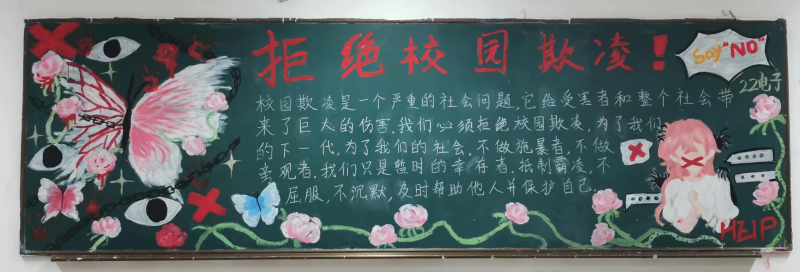 拒绝校园欺凌！
Say "NO"
22电子
校园欺凌是一个严重的社会问题,它给受害者和整个社会带
来了巨大的伤害,我们必须拒绝校园欺凌,为了我们
的下一代,为了我们的社会,不做施暴者,不做
旁观者,我们只是暂时的幸存者,抵制霸凌,不
屈服,不沉默,及时帮助他人并保护自己.
HELP